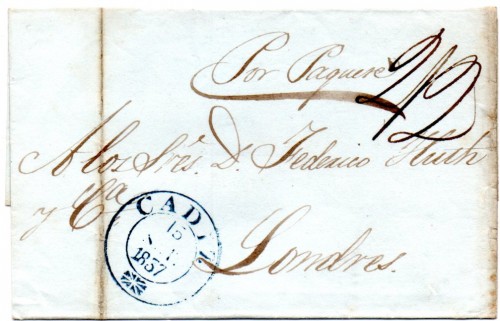 Por Paquete
2/2
A los Sres. D. Federico Huth
y Ca
Londres.
CADIZ
15
1837